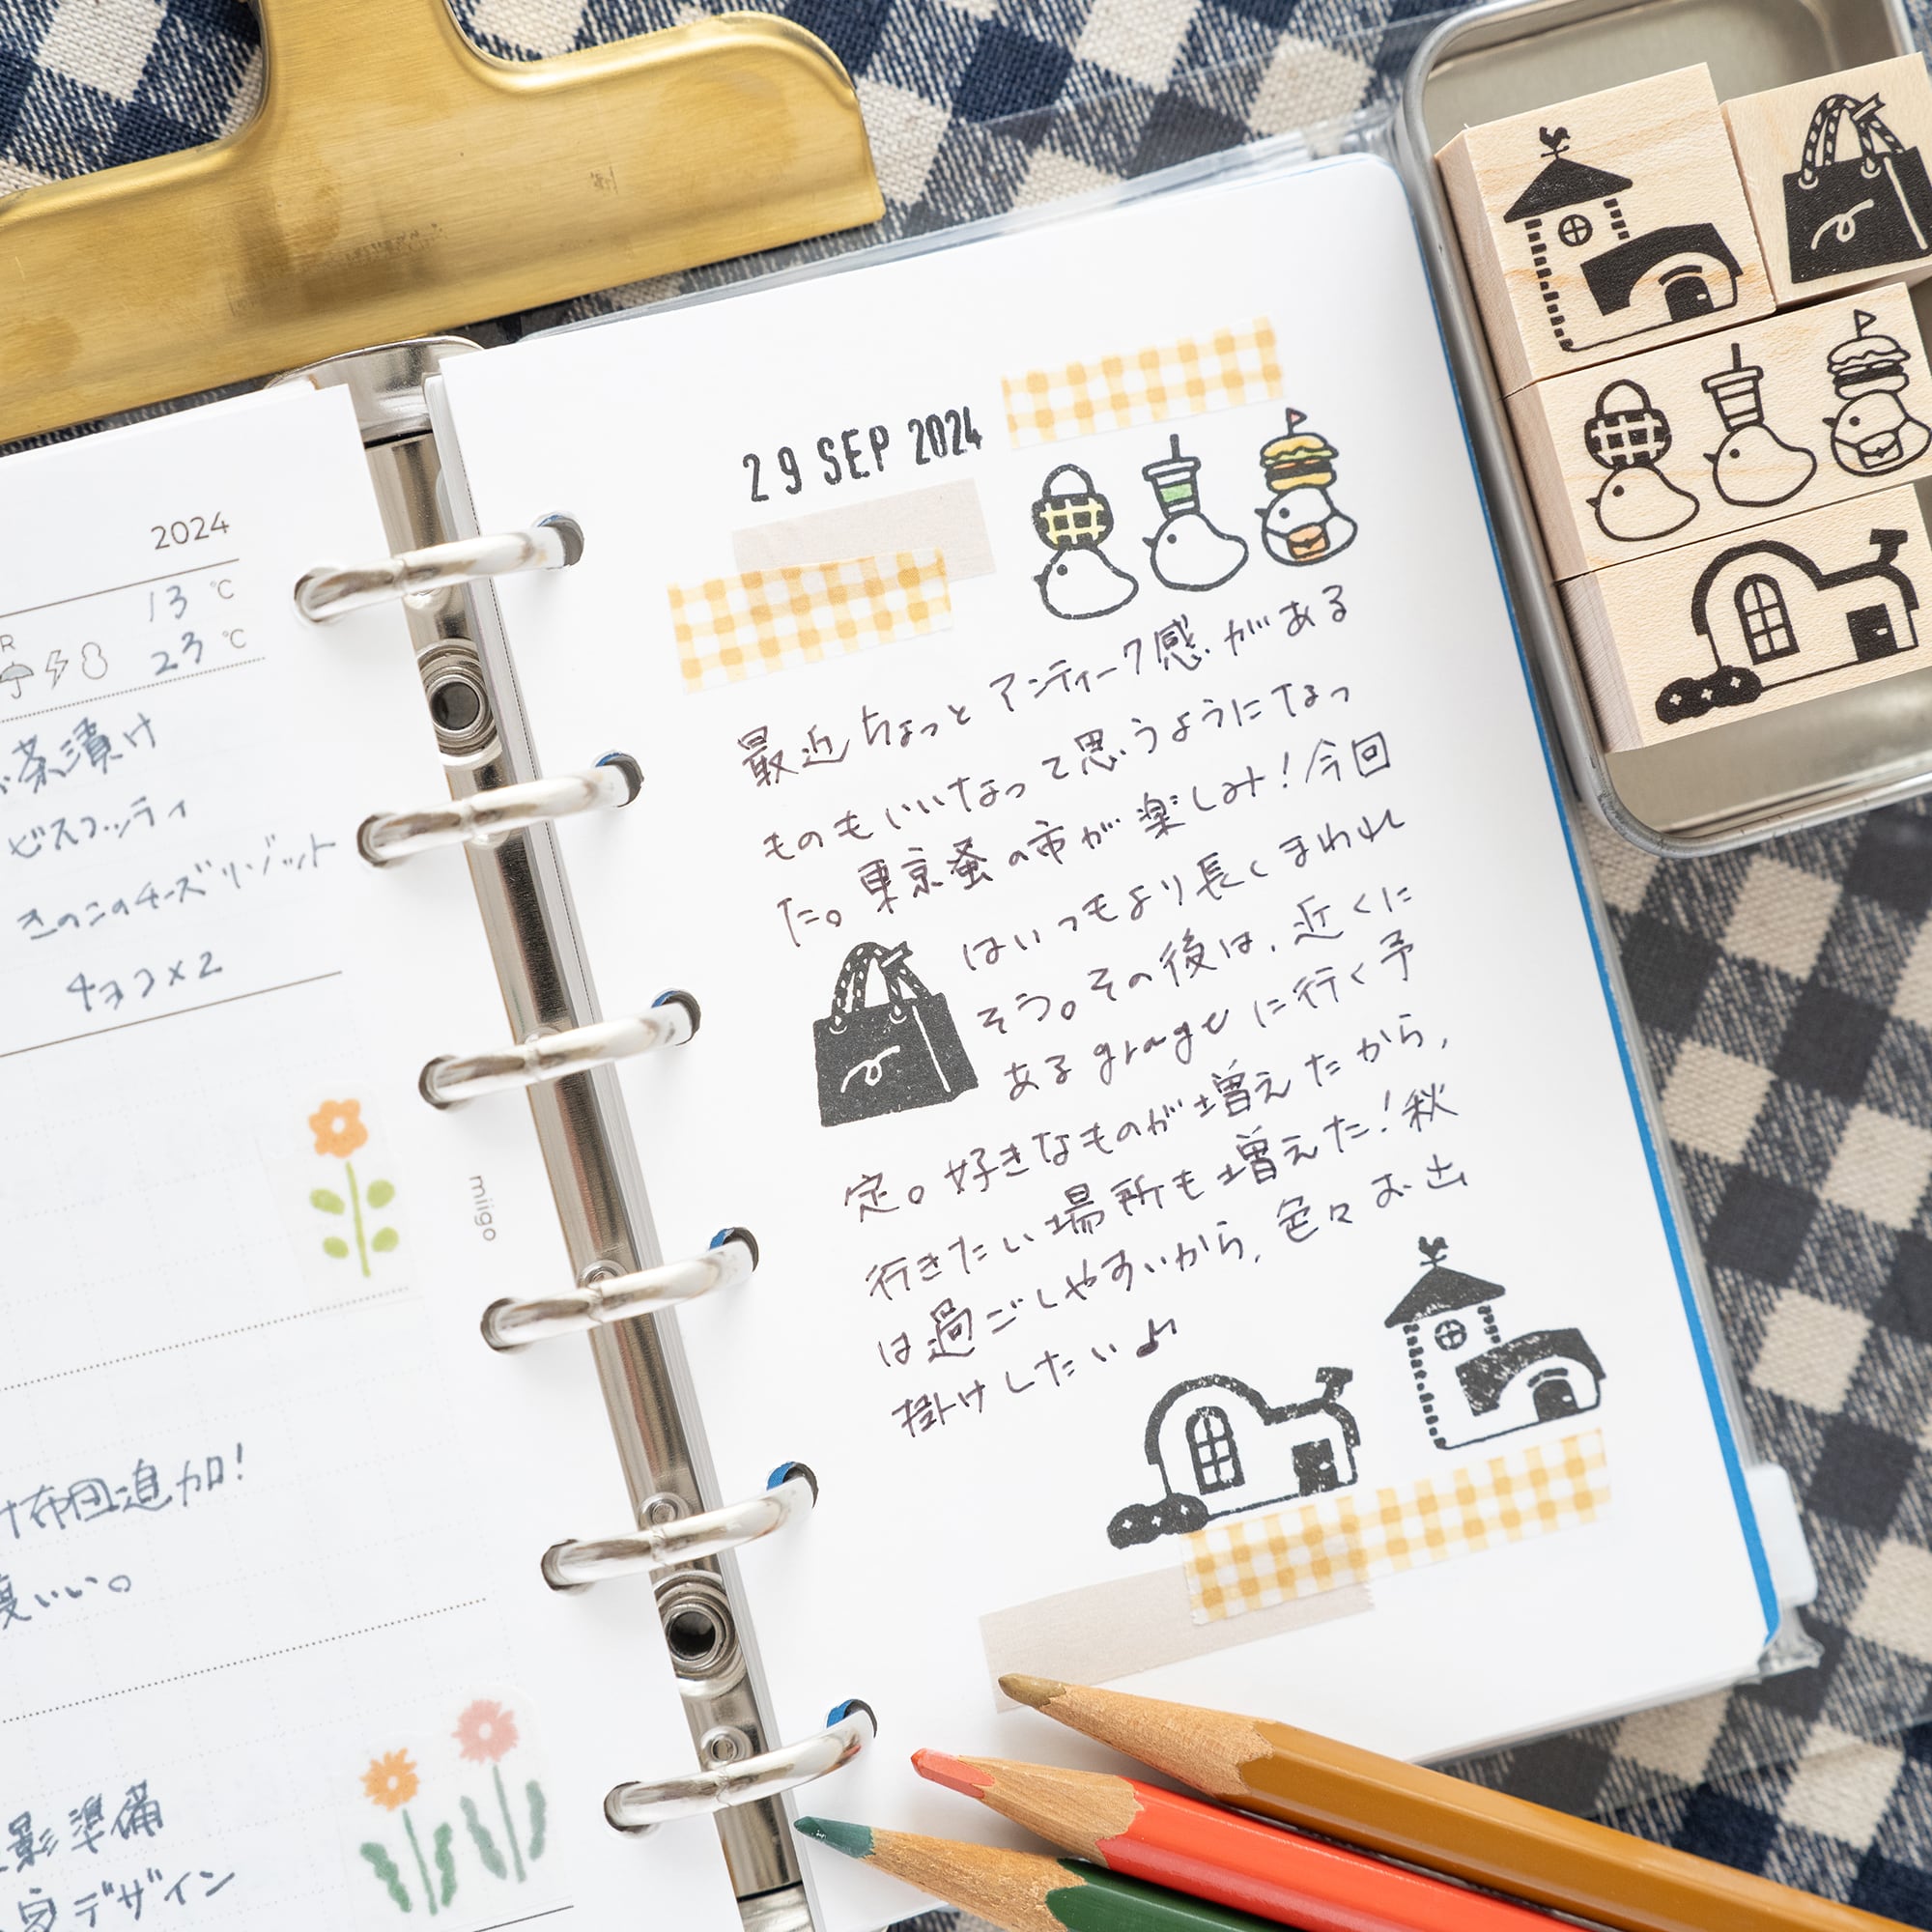 2024
R
13 ℃
23 ℃
茶漬け
ビスコッティ
きのこのチーズリゾット
チョコ×2
布団追加!
いい。
影準備
デザイン
miigo
29 SEP 2024
最近ちょっとアンティーク感がある
ものもいいなって思うようになっ
た。東京蚤の市が楽しみ!今回
はいつもより長くまわれ
そう。その後は、近くに
ある grage に行く予
定。好きなものが増えたから、
行きたい場所も増えた!秋
は過ごしやすいから、色々お出
掛けしたい♪